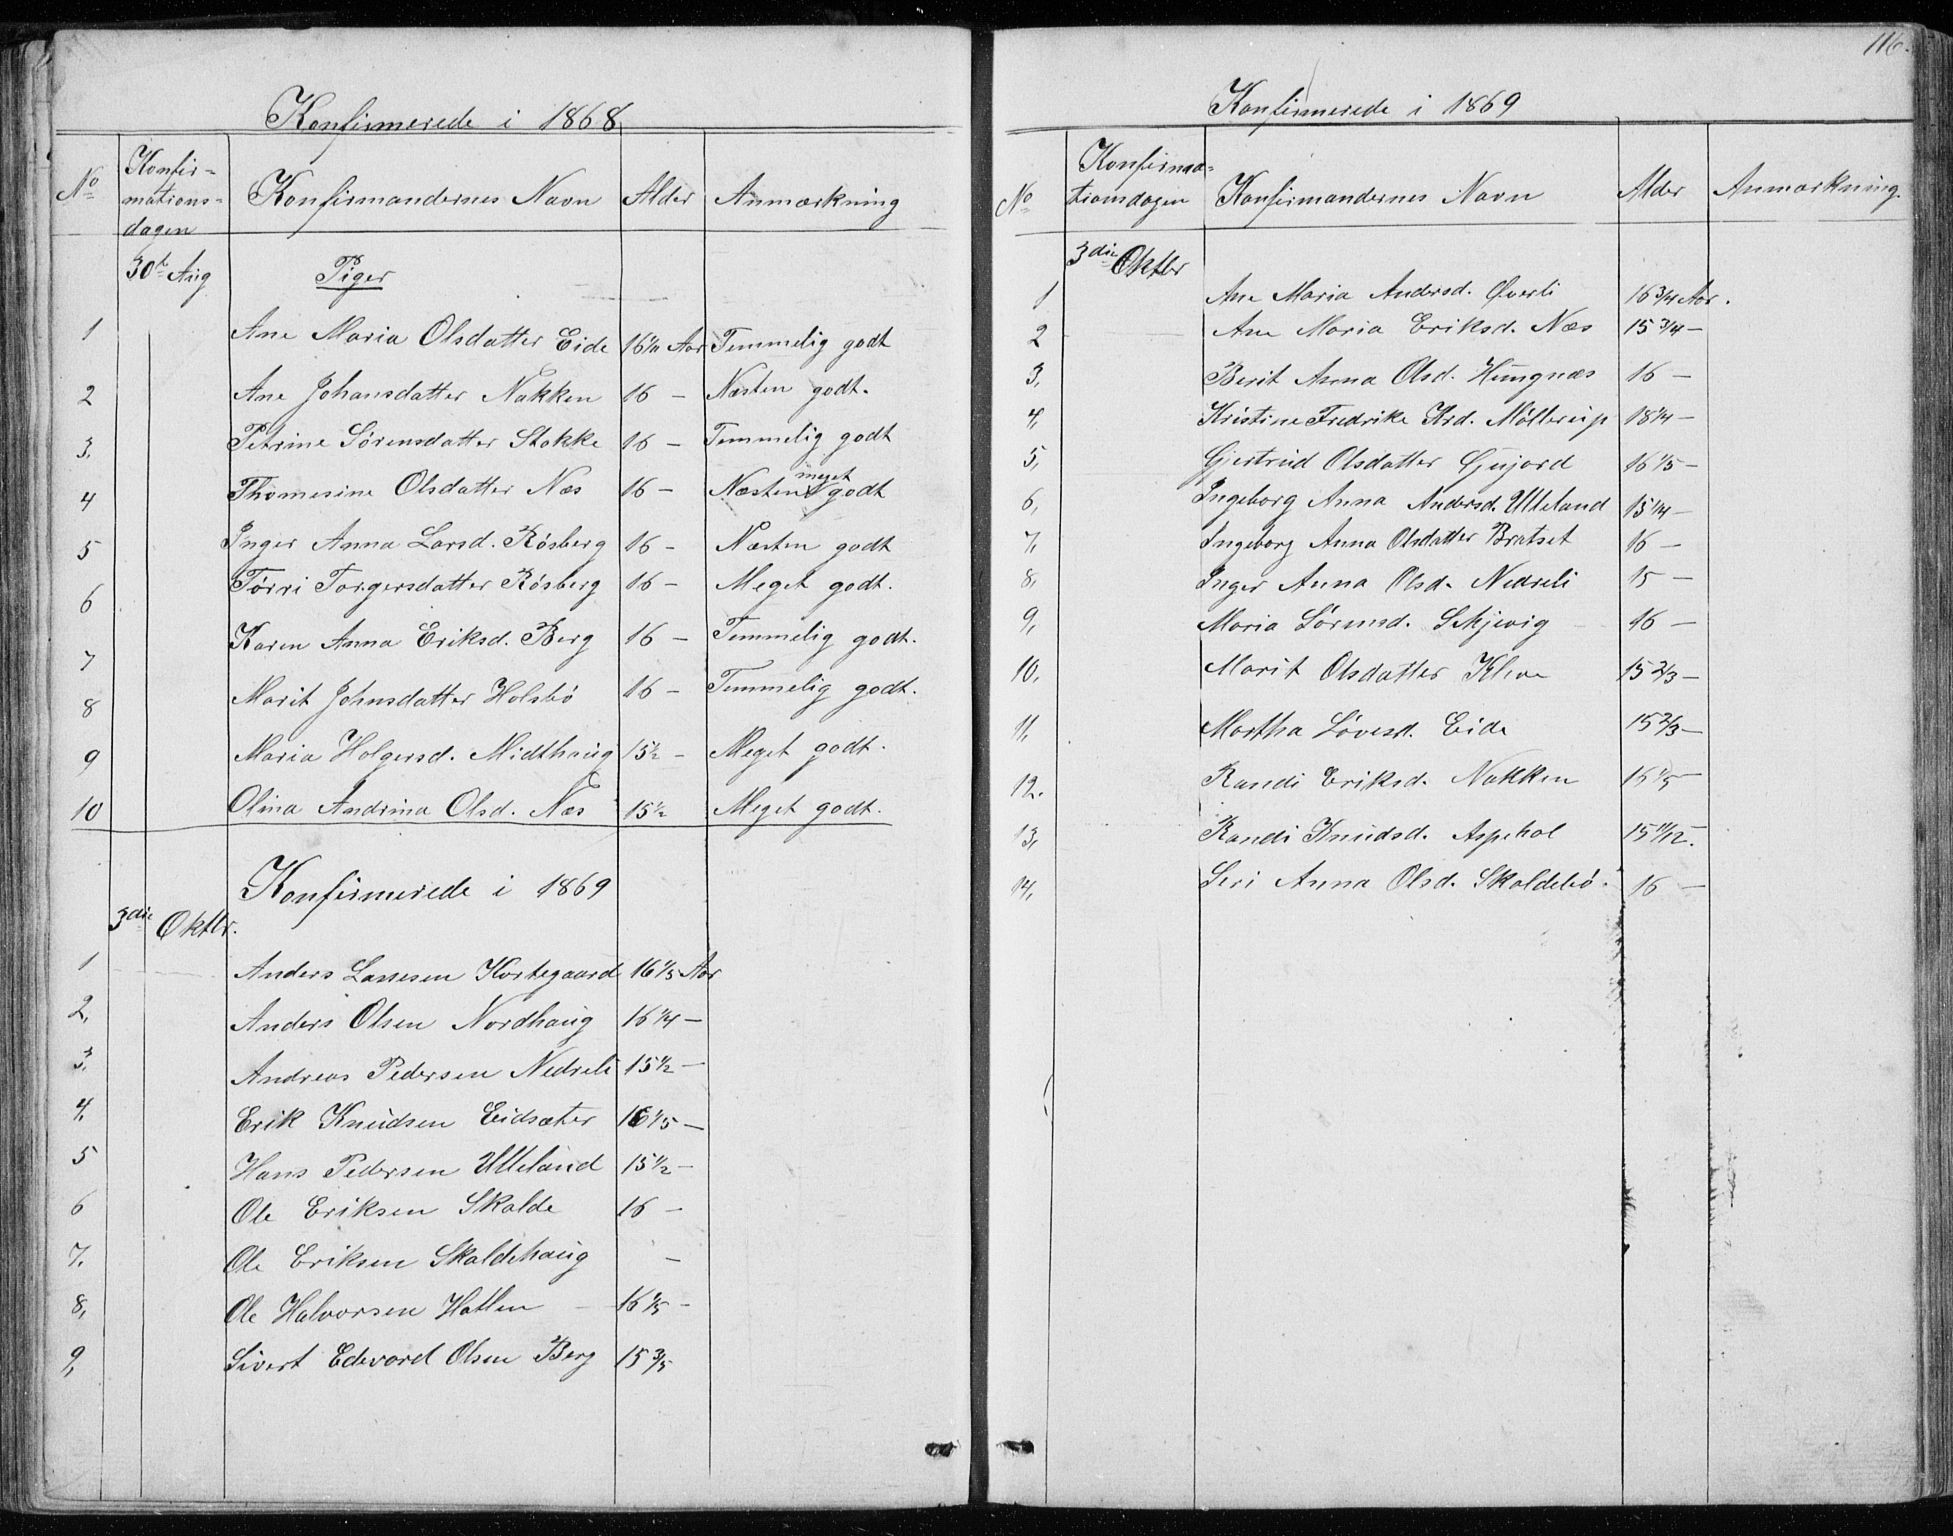 Konfirmerede i 1868
No Konfir= Konfirmandernes Navn Alder Anmærkning
mations=
dagen
30t Aug Piger
1 Ane Maria Olsdatter Eide Aar Temmelig godt
2 Ane Johansdatter Nakken 16 — Næsten godt.
3. Petrine Sørensdatter Stokke 16 — Temmelig godt
4 Thomesine Olsdatter Næs 16 — Næsten meget godt
5 Inger Anna Larsd. Rösberg 16 — Næsten godt
6 Törri Torgersdatter Rösberg 16 — Meget godt.
7 Karen Anna Eriksd. Berg 16 — Temmelig godt.
8 Marit Johnsdatter Holsbö 16 — Temmelig godt.
9 Maria Holgersd. Midthaug 15½ — Meget godt.
10 Olina Andrina Olsd. Næs 15½ Meget godt.
Konfirmerede i 1869
3die Oktbr.
1 Anders Lassesen Kortgaard 16 1/5 Aar
2, Anders Olsen Nordhaug 16 1/4 —
3, Andreas Pedersen Nedreli 15 1/2 —
4, Erik Knudsen Eidsæter 16 1/5 —
5 Hans Pedersen Ulleland 15 1/2 —
6 Ole Eriksen Skalde 16 —
7. Ole Eriksen Skaldehaug —
8, Ole Halvorsen Hatlen — 16 1/5 —
9, Sivert Edevard Olsen Berg 15 3/5
116.
Konfirmerede i 1869
No Konfirma= Konfirmandernes Navn Alder Anmærkning.
tionsdagen
3die Oktbr
1 Ane Maria Andersd. Øverli 16 3/4 Aar.
2 Ane Maria Eriksd. Næs 15 3/4 —
3, Berit Anna Olsd. Hungnæs 16 —
4, Kristine Fredrike Krd. Möllerup 18 1/4 —
5, Gjertrud Olsdatter Gujord 16 1/5 —
6, Ingeborg Anna Andersd. Ulleland 15 1/4 —
7, Ingeborg Anna Olsdatter Bratset 16 —
8, Inger Anna Olsd. Nedreli 15 —
9, Maria Sørensd. Skjevig 16 —
10, Marit Olsdatter Kleva 15 2/3 —
11, Martha Lövesd. Eide 15 2/3 —
12. Randi Eriksd. Nakken 16 1/5 —
13, Randi Knudsd. Aspehol 15 11/12.
14, Seri Anna Olsd. Skaldebö. 16 —